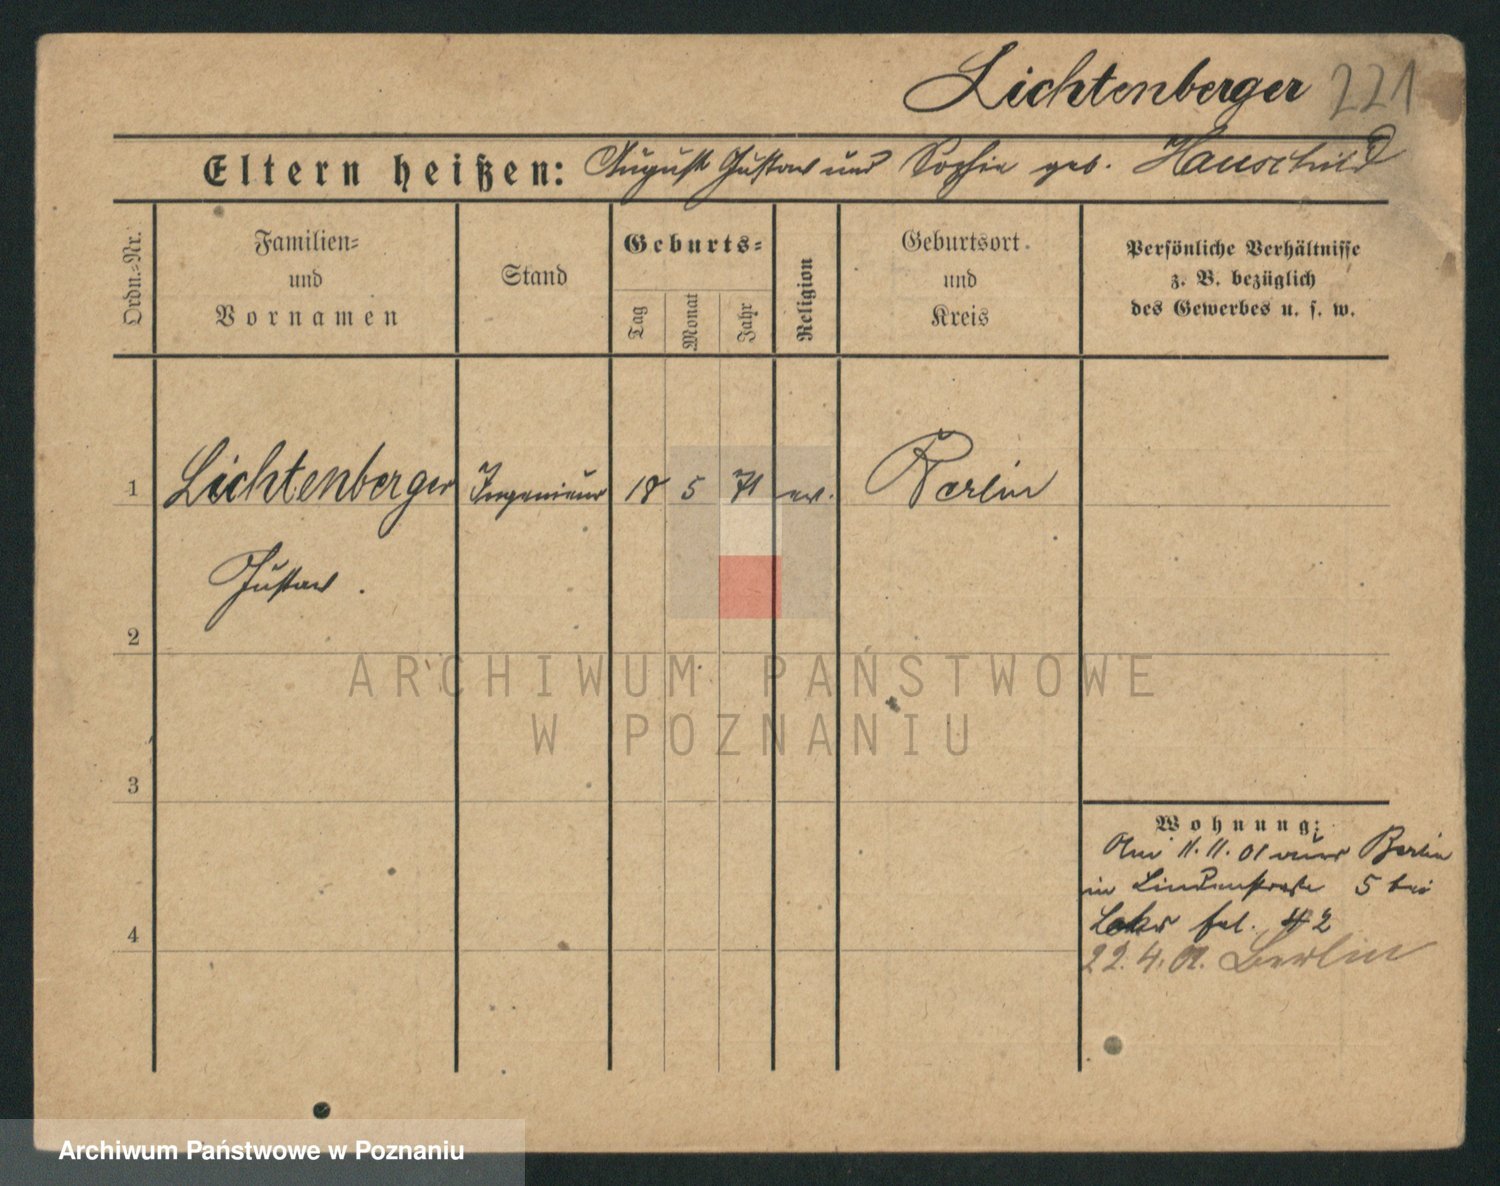 Lichtenberger 221
Eltern heißen: August Gustav und Sophie geb. Hauschild
Ordn.=Nr.
Familien=
und
Vornamen
Stand
Geburts=
Tag
Monat
Jahr
Religion
Geburtsort
und
Kreis
Persönliche Verhältnisse
z. B. bezüglich
des Gewerbes u. s. w.
1 Lichtenberger Ingenieur 18 5 71 ev. Berlin
Gustav.
2
ARCHIWUM PAŃSTWOWE
W POZNANIU
3
Wohnung:
Am 11.11.01 aus Berlin
in Lindenstraße 5 bei
4
22.4.02. Berlin
Archiwum Państwowe w Poznaniu